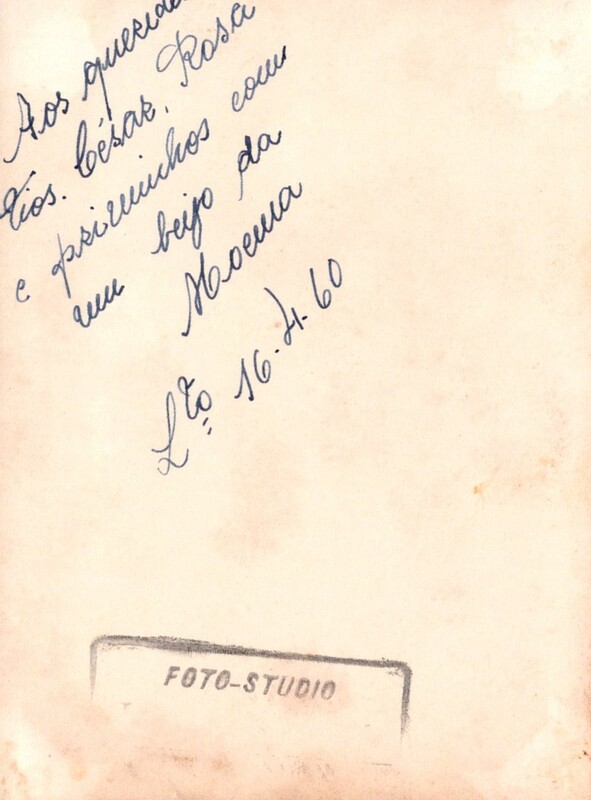 Aos querido
Tios. César, Rosa
e priminhos com
um beijo da
Moema
Lto 16-4-60
FOTO-STUDIO